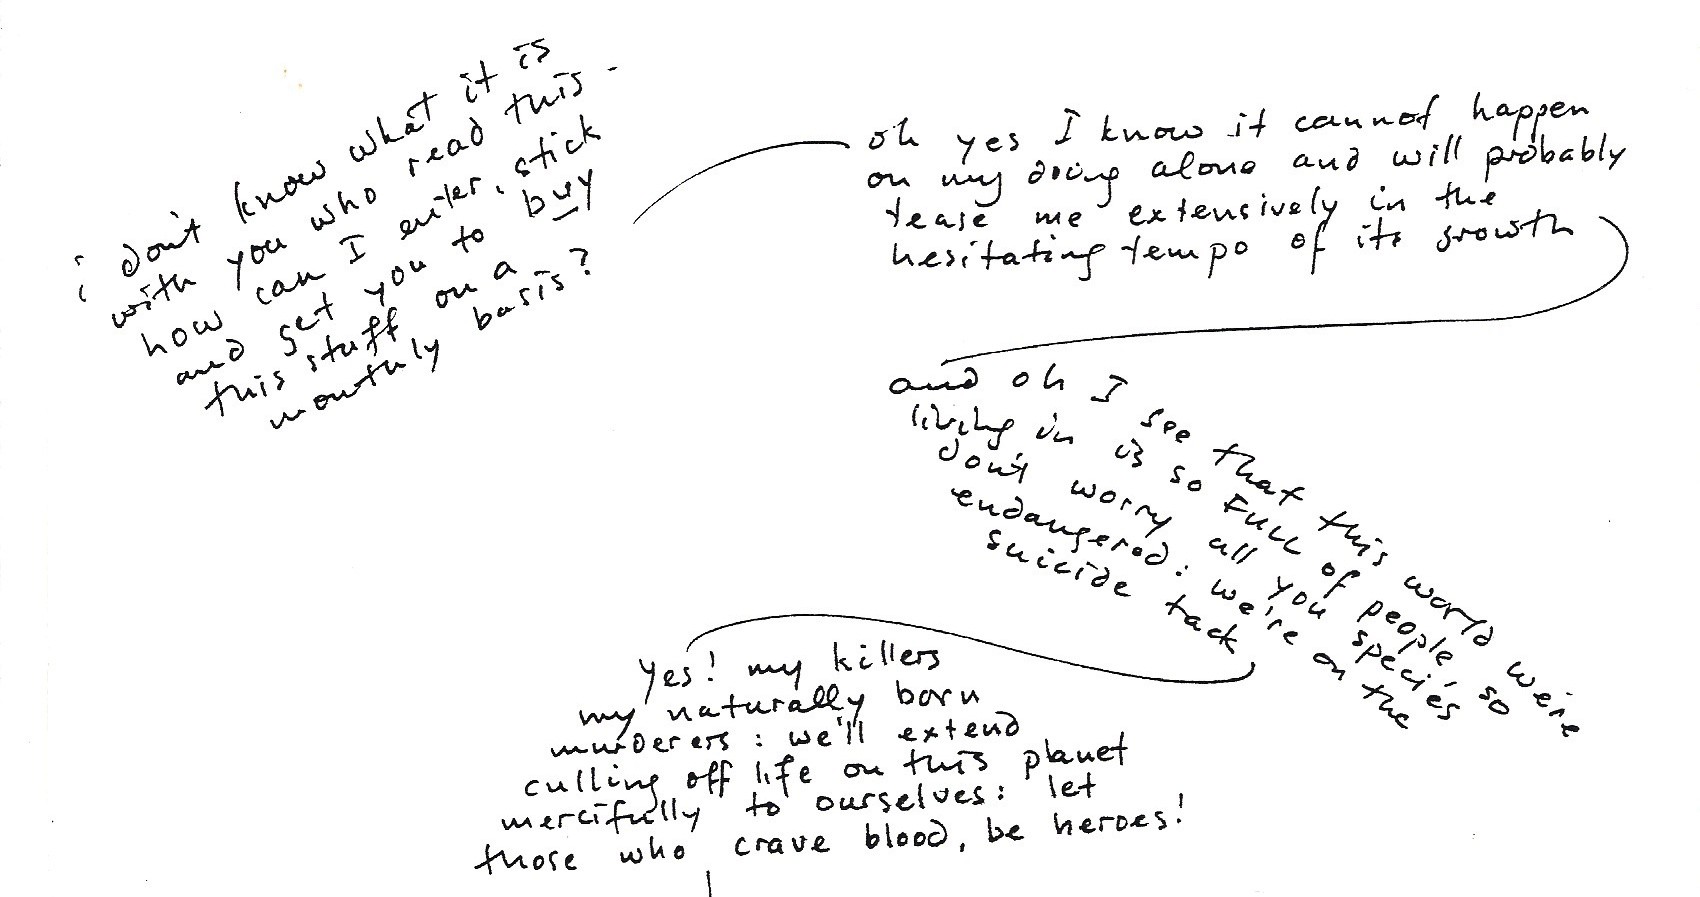 i don't know what it is
with you who read this -
how can I enter, stick
and get you to buy
this stuff on a
monthly basis?
oh yes I know it cannot happen
on my doing alone and will probably
tease me extensively in the
hesitating tempo of its growth
and oh I see that this world we're
living in is so FULL of people, so
don't worry all you species
endangered: we're on the
suicide tack
yes! my killers
my naturally born
murderers: we'll extend
culling off life on this planet
mercifully to ourselves: let
those who crave blood, be heroes!